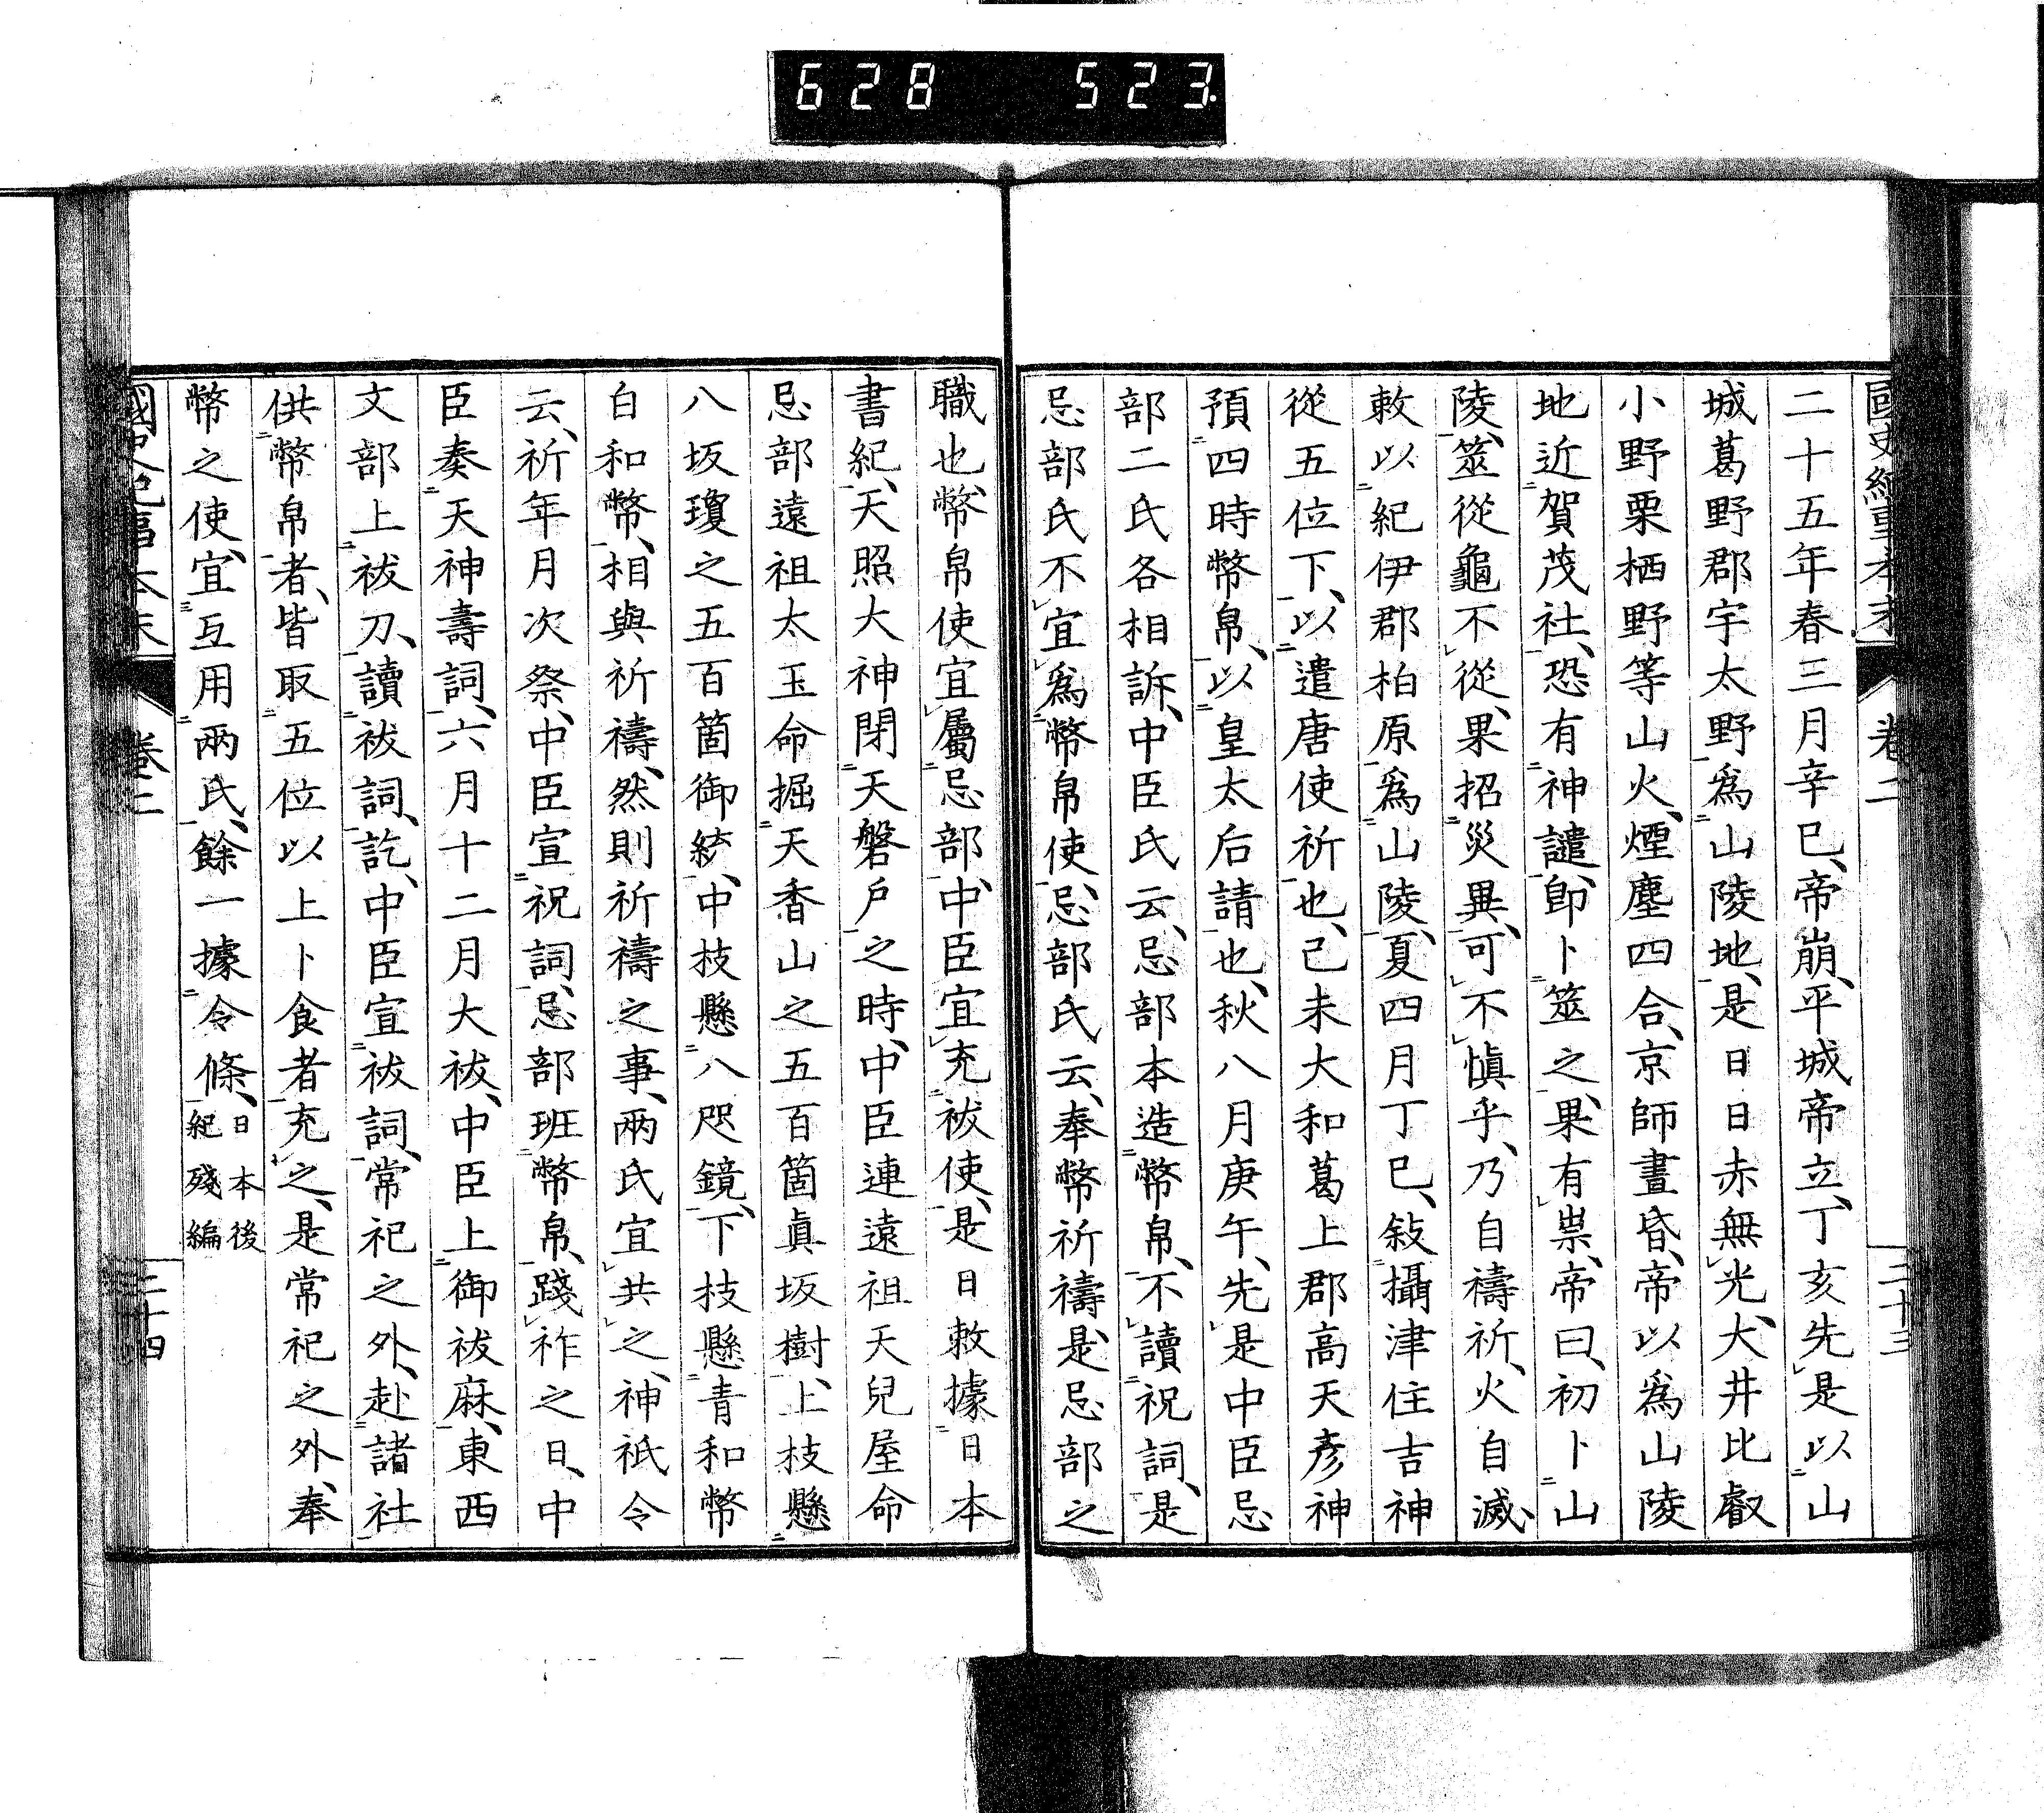 628 523
國史紀事本末 卷二 二十三
二十五年春三月辛巳、帝崩、平城帝立、丁亥先是以山
城葛野郡宇太野爲山陵地、是日日赤無光、大井比叡
小野栗栖野等山火、煙塵四合、京師晝昏、帝以爲山陵
地近賀茂社、恐有神譴、卽卜筮之、果有祟、帝曰、初卜山
陵、筮從龜不從、果招災異、可不愼乎、乃自禱祈、火自滅、
敕以紀伊郡柏原爲山陵、夏四月丁巳、敍攝津住吉神
從五位下、以遣唐使祈也、己未大和葛上郡高天彥神
預四時幣帛、以皇太后請也、秋八月庚午、先是中臣忌
部二氏各相訴、中臣氏云、忌部本造幣帛、不讀祝詞、是
忌部氏不宜爲幣帛使、忌部氏云、奉幣祈禱、是忌部之
職也、幣帛使宜屬忌部、中臣宜充祓使、是日敕據日本
書紀、天照大神閉天磐戶之時、中臣連遠祖天兒屋命
忌部遠祖太玉命掘天香山之五百箇眞坂樹、上枝懸
八坂瓊之五百箇御統、中枝懸八咫鏡、下枝懸青和幣
白和幣、相與祈禱、然則祈禱之事、兩氏宜共之、神祇令
云、祈年月次祭、中臣宣祝詞、忌部班幣帛、踐祚之日、中
臣奏天神壽詞、六月十二月大祓、中臣上御祓麻、東西
文部上祓刀、讀祓詞、訖、中臣宣祓詞、常祀之外、赴諸社
供幣帛者、皆取五位以上卜食者充之、是常祀之外、奉
幣之使、宜互用兩氏、餘一據令條、日本後紀殘編
國史紀事本末 卷二 二十四